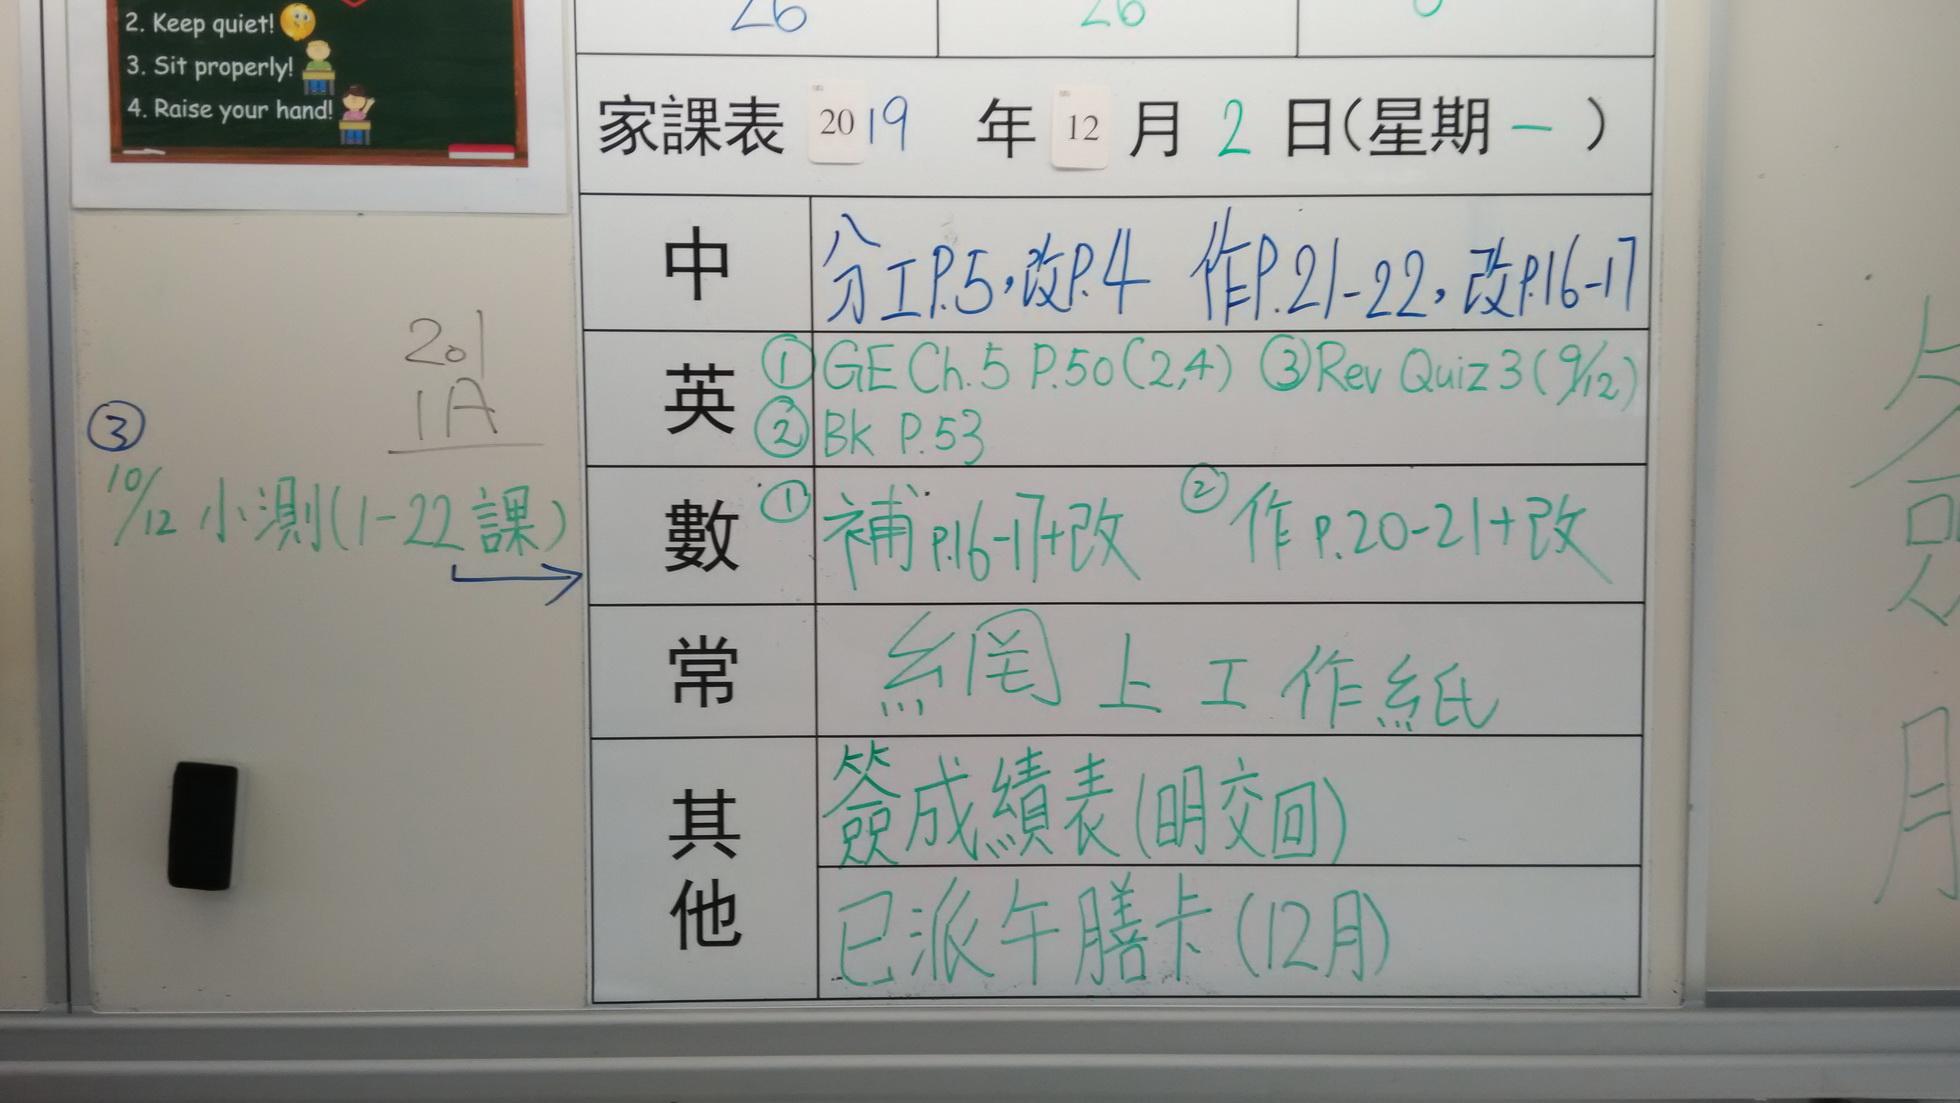 2. Keep quiet!
3. Sit properly!
4. Raise your hand!
26
26
家課表 2019 年 12 月 2 日(星期一)
中 分工P.5,改P.4 作P.21-22,改P.16-17
英 ①GE Ch.5 P.50(2,4) ③Rev Quiz 3(9/12)
②Bk P.53
數 ①補P.16-17+改 ②作P.20-21+改
常 網上工作紙
其他 簽成績表(明交回)
已派午膳卡(12月)
201
1A
③
10/12 小測(1-22課)
月